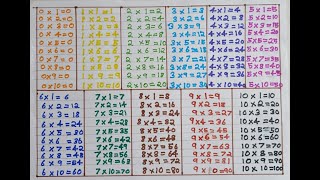 0 x 1=0
0 x 2=0
0 x 3=0
0 x 4=0
0 x 5=0
0 x 6=0
0 x 7=0
0 x 8=0
0 x 9=0
0 x 10=0
1 x 1=1
1 x 2=2
1 x 3=3
1 x 4=4
1 x 5=5
1 x 6=6
1 x 7=7
1 x 8=8
1 x 9=9
1 x 10=10
2 x 1=2
2 x 2=4
2 x 3=6
2 x 4=8
2 x 5=10
2 x 6=12
2 x 7=14
2 x 8=16
2 x 9=18
2 x 10=20
3 x 1=3
3 x 2=6
3 x 3=9
3 x 4=12
3 x 5=15
3 x 6=18
3 x 7=21
3 x 8=24
3 x 9=27
3 x 10=30
4 x 1=4
4 x 2=8
4 x 3=12
4 x 4=16
4 x 5=20
4 x 6=24
4 x 7=28
4 x 8=32
4 x 9=36
4 x 10=40
5 x 1=5
5 x 2=10
5 x 3=15
5 x 4=20
5 x 5=25
5 x 6=30
5 x 7=35
5 x 8=40
5 x 9=45
5 x 10=50
6 x 1 = 6
6 x 2 = 12
6 x 3 = 18
6 x 4 = 24
6 x 5 = 30
6 x 6 = 36
6 x 7 = 42
6 x 8 = 48
6 x 9 = 54
6 x 10 = 60
7 x 1 = 7
7 x 2 = 14
7 x 3 = 21
7 x 4 = 28
7 x 5 = 35
7 x 6 = 42
7 x 7 = 49
7 x 8 = 56
7 x 9 = 63
7 x 10 = 70
8 x 1 = 8
8 x 2 = 16
8 x 3 = 24
8 x 4 = 32
8 x 5 = 40
8 x 6 = 48
8 x 7 = 56
8 x 8 = 64
8 x 9 = 72
8 x 10 = 80
9 x 1 = 9
9 x 2 = 18
9 x 3 = 27
9 x 4 = 36
9 x 5 = 45
9 x 6 = 54
9 x 7 = 63
9 x 8 = 72
9 x 9 = 81
9 x 10 = 90
10 x 1 = 10
10 x 2 = 20
10 x 3 = 30
10 x 4 = 40
10 x 5 = 50
10 x 6 = 60
10 x 7 = 70
10 x 8 = 80
10 x 9 = 90
10 x 10 = 100